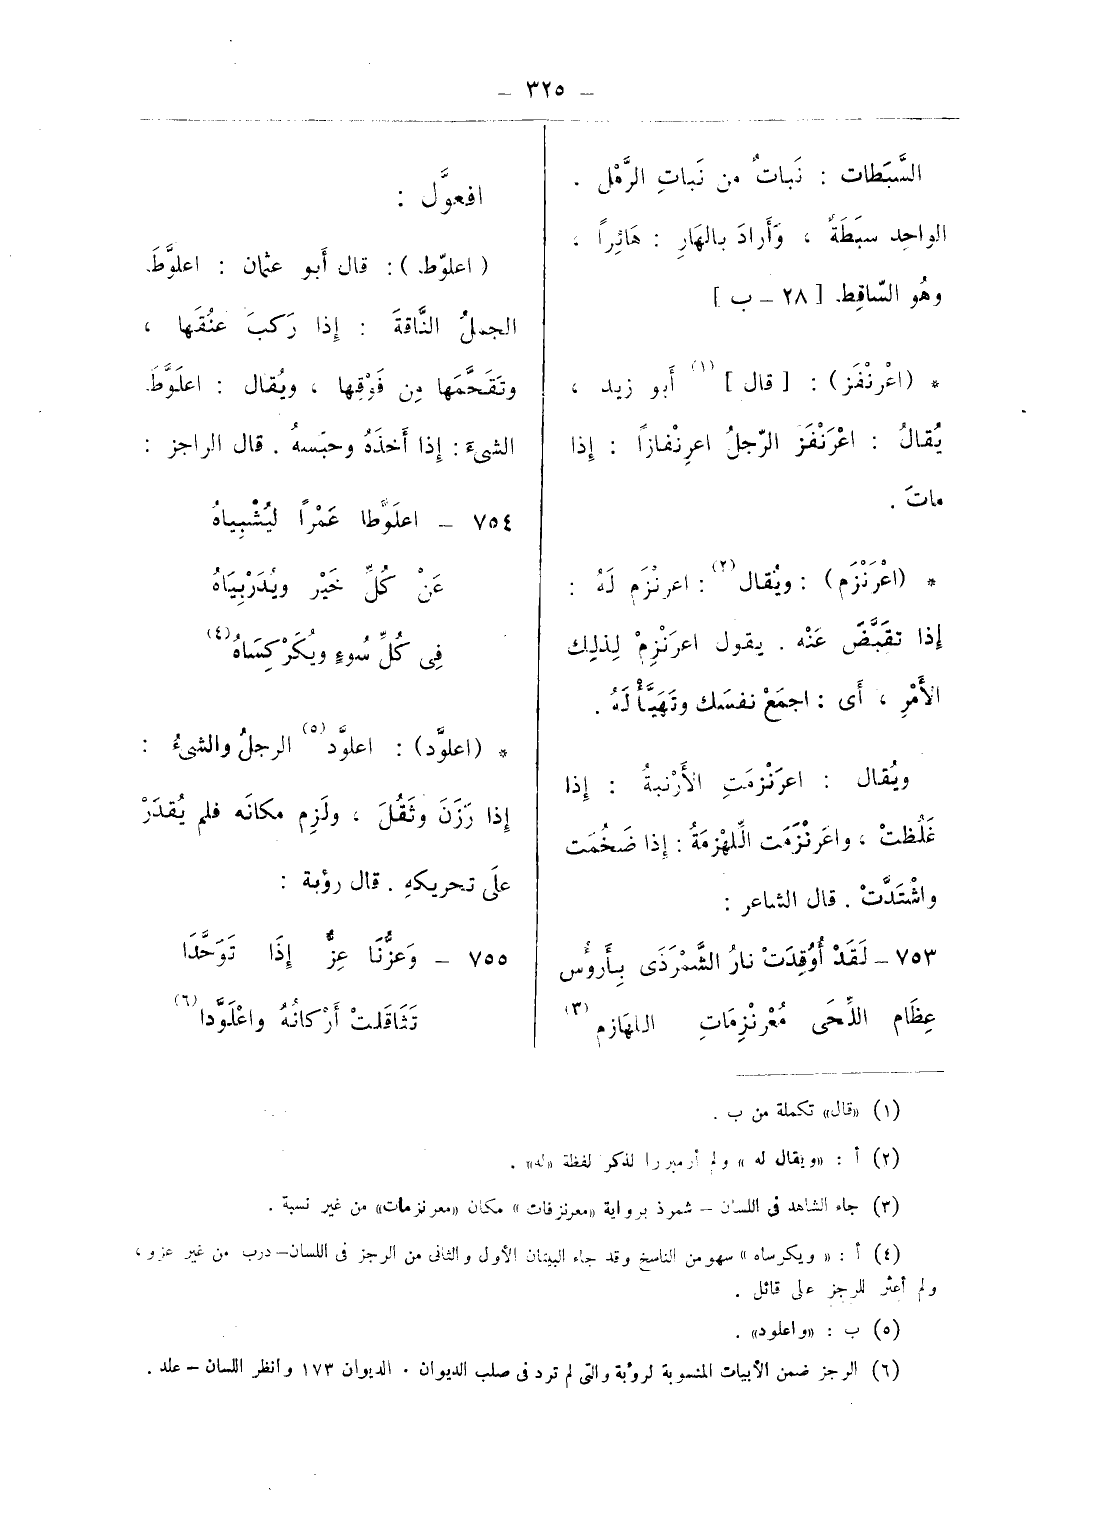 – ٣٢٥ –
السَّبَطات : نَباتٌ من نَباتِ الرَّمْل .
الواحِد سبَطَةٌ ، وَأَرادَ بالهَارِ : هَائِراً ،
وهُو السّاقِط [ ٢٨ – ب ]
* (اعْرنْفَز) : [ قال ] (١) أَبو زيد ،
يُقالُ : اعْرَنْفَز الرّجلُ اعرِنْفازًا : إذا
ماتَ .
* (اعْرَنْزَم) : ويُقال (٢) : اعرنْزَم لَهُ :
إذا تقَبَّضَ عَنْه . يقول اعرَنْزِمْ لِذلِك
الأَمْرِ ، أَى : اجمَعْ نفسَك وتَهَيَّأْ لَهُ .
ويُقال : اعرَنْزمَتِ الأَرْنبةُ : إذا
غَلُظتْ ، واعَرنْزَمَت الِّلهْزمَةُ : إذا ضَخُمَت
واشْتَدَّتْ . قال الشاعر :
٧٥٣ – لَقَدْ أُوُقِدَتْ نارُ الشَّمَرْذَى بِأَروُسٍ
عِظَام اللِّحَى مُعْرنْزِمَاتِ اللهَازم (٣)
افعوَّل :
( اعلوّط ) : قال أَبو عثمان : اعلوَّطَ
الجملُ النَّاقةَ : إذا رَكبَ عنُقَها ،
وتَقَحَّمَها مِن فَوْقِها ، ويُقال : اعلَوَّطَ
الشىءَ : إذا أَخذَهُ وحبَسهُ . قال الراجز :
٧٥٤ – اعلَوَّطا عَمْرًا ليُشْبِياهُ
عَنْ كُلِّ خَيْر ويُدَرْبِيَاهُ
فِى كُلِّ سُوءٍ ويُكَرْكِسَاهُ (٤)
* (اعلوَّد) : اعلوَّد (٥) الرجلُ والشىءُ :
إذا رَزَنَ وثَقُلَ ، ولَزِم مكانَه فلم يُقدَرْ
علَى تحريكهِ . قال رؤبة :
٧٥٥ – وَعزُّنَا عِزٌّ إِذَا تَوَحَّدَا
تَثَاقَلتْ أَرْكانُهُ واعْلَوَّدا (٦)
(١) «قال» تكملة من ب .
(٢) أ : «ويقال له» ولم أر مبررا لذكر لفظة «له» .
(٣) جاء الشاهد فى اللسان – شمرذ برواية «معرنزفات» مكان «معرنزمات» من غير نسبة .
(٤) أ : « ويكرساه » سهو من الناسخ وقد جاء البيتان الأول والثانى من الرجز فى اللسان – درب من غير عزو ،
ولم أعثر للرجز على قائل .
(٥) ب : «واعلود» .
(٦) الرجز ضمن الأبيات المنسوبة لرؤبة والتى لم ترد فى صلب الديوان . الديوان ١٧٣ وانظر اللسان – علد .